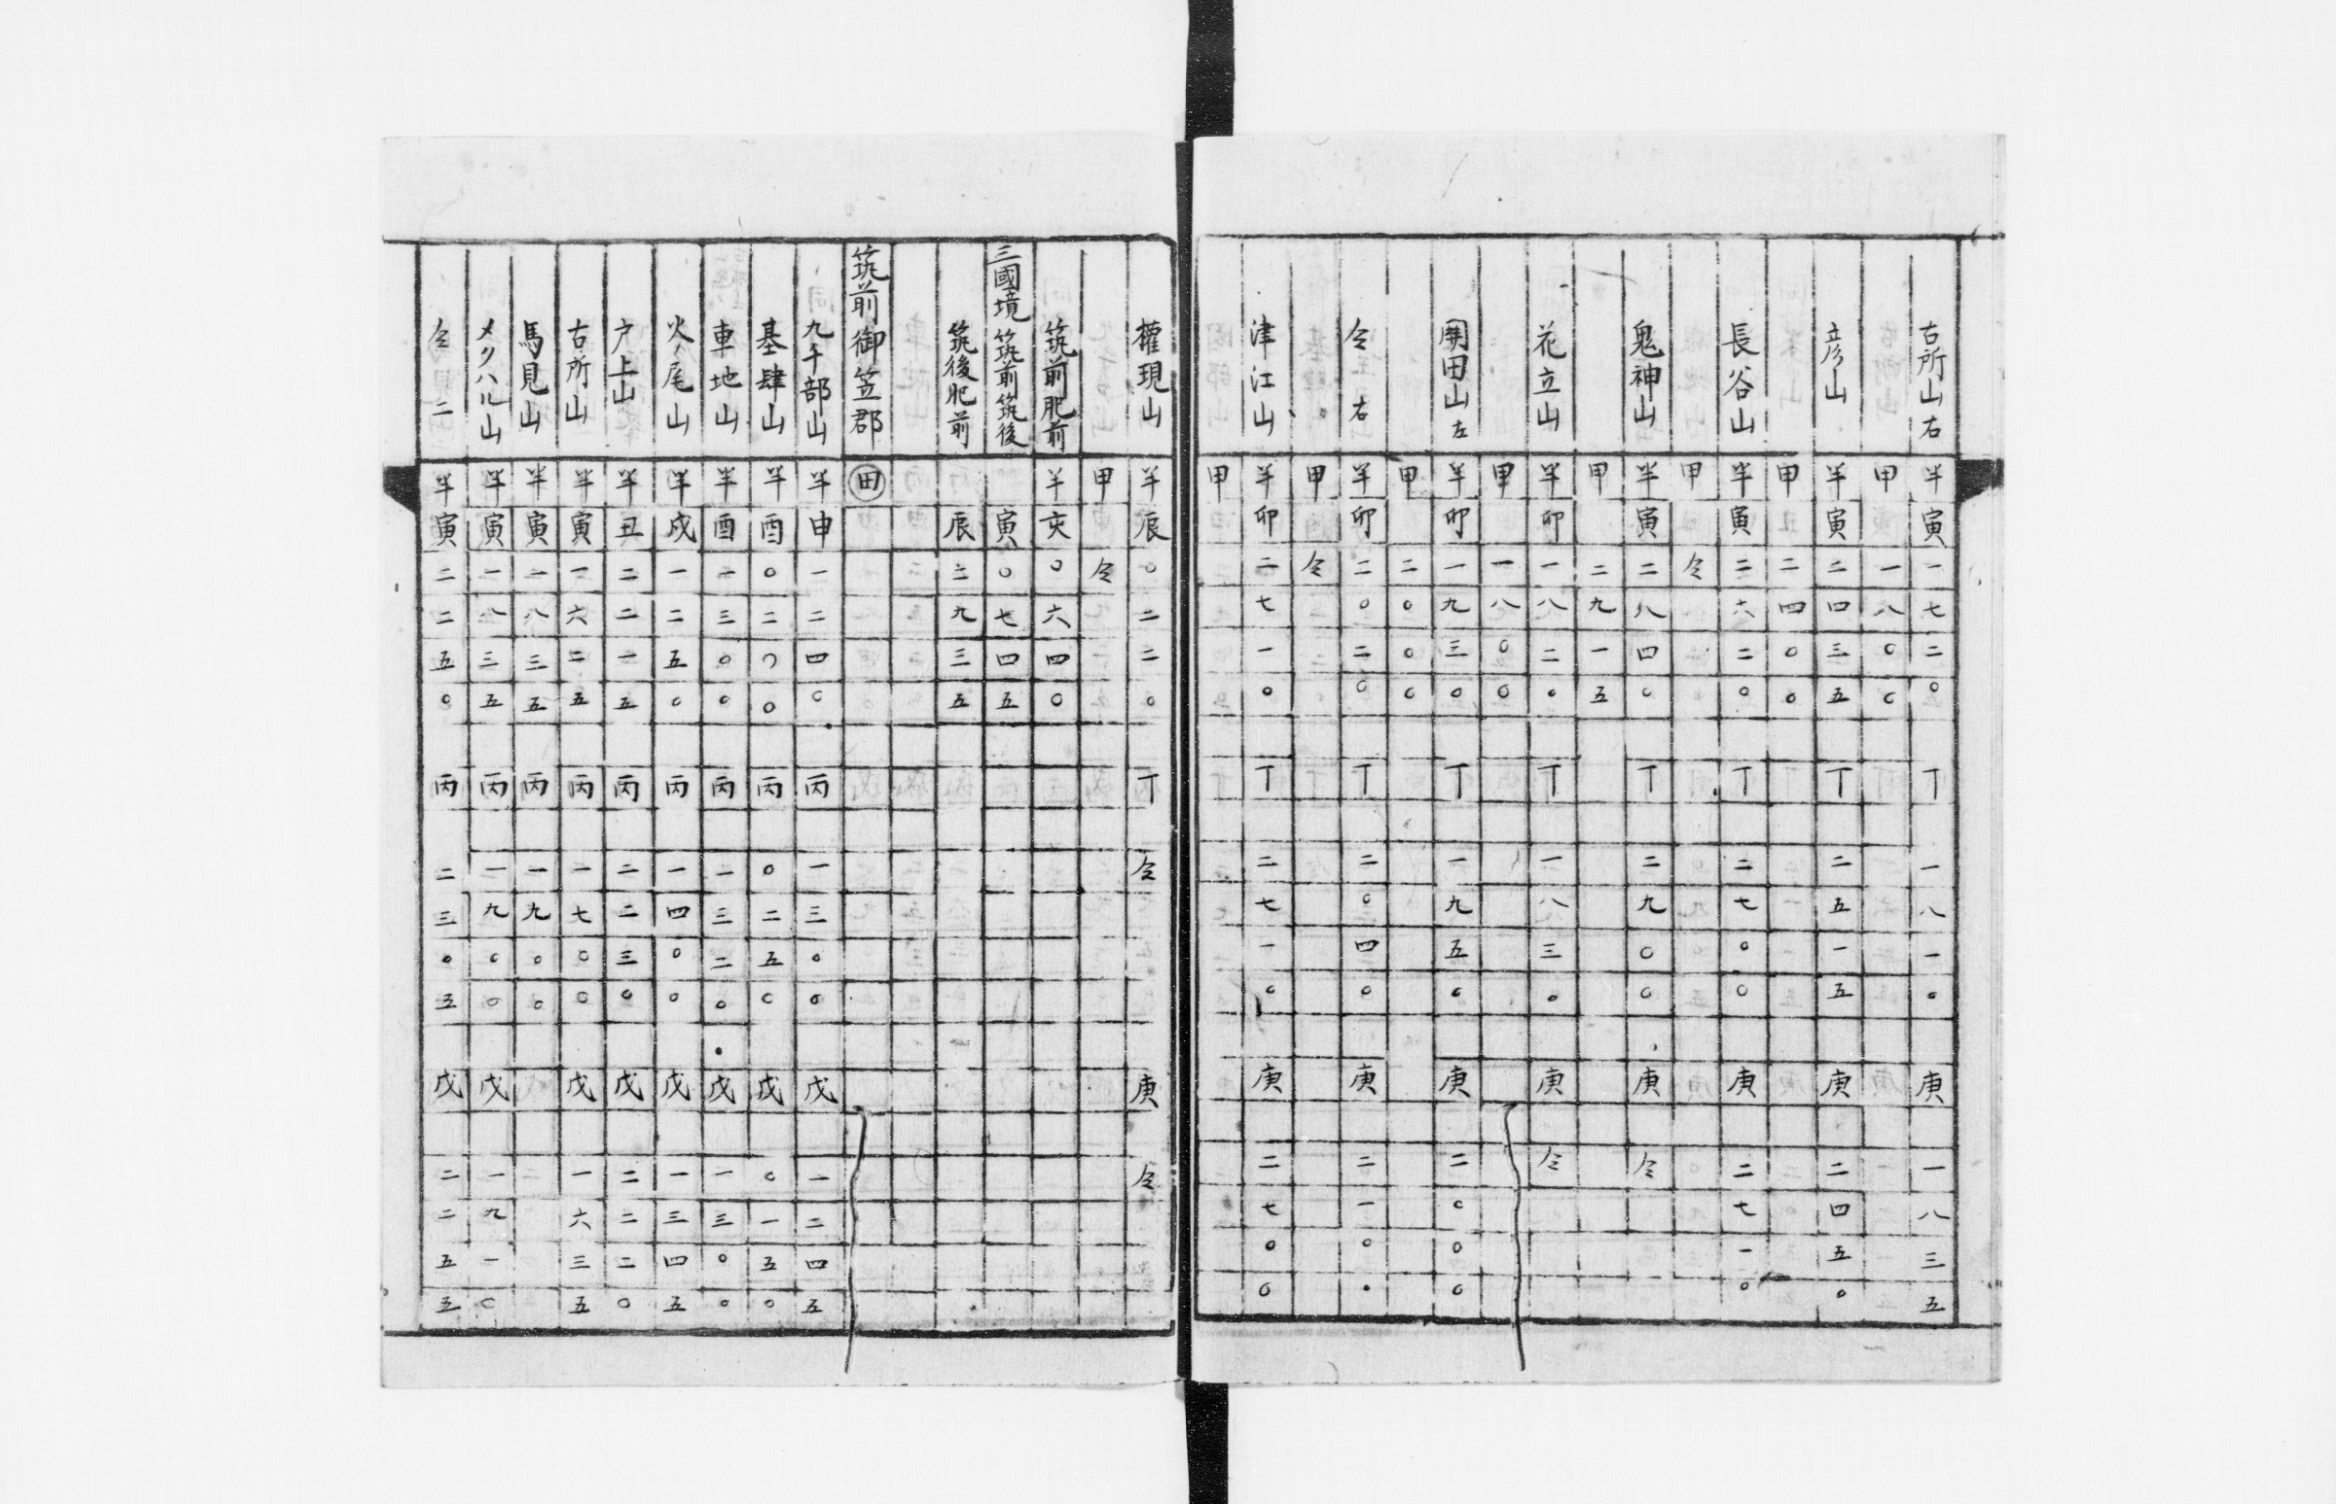 古所山右 半寅一七二〇 丁 一八一〇 庚 一八三五
甲 一八〇〇
彦山 半寅二四三五 丁 二五一五 庚 二四五〇
甲 二四〇〇
長谷山 半寅二六二〇 丁 二七〇〇 庚 二七一〇
甲 仝
鬼神山 半寅二八四〇 丁 二九〇〇 庚 仝
甲 二九一五
花立山 半卯一八二〇 丁 一八三〇 庚 仝
甲 一八〇〇
開田山左 半卯一九三〇 丁 一九五〇 庚 二〇〇〇
甲 二〇〇〇
仝 右 半卯二〇二〇 丁 二〇四〇 庚 二一〇〇
甲 仝
津江山 半卯二七一〇 丁 二七一〇 庚 二七〇〇
甲
權現山 半辰〇二二〇 丁 仝 庚 仝
甲 仝
筑前肥前 半亥〇六四〇
三國境 筑前筑後 寅〇七四五
筑後肥前 辰二九三五
筑前御笠郡 田
九千部山 半申一二四〇 丙 一三〇〇 戊 一二四五
基肄山 半酉〇二〇〇 丙 〇二五〇 戊 〇一五〇
車地山 半酉一三〇〇 丙 一三二〇 戊 一三〇〇
火ノ尾山 半戌一二五〇 丙 一四〇〇 戊 一三四五
戸上山 半丑二二一五 丙 二二三〇 戊 二二二〇
古所山 半寅一六二五 丙 一七〇〇 戊 一六三五
馬見山 半寅一八三五 丙 一九〇〇
メクハル山 半寅一八三五 丙 一九〇〇 戊 一九一〇
仝 二 半寅二二五〇 丙 二三〇五 戊 二二五五